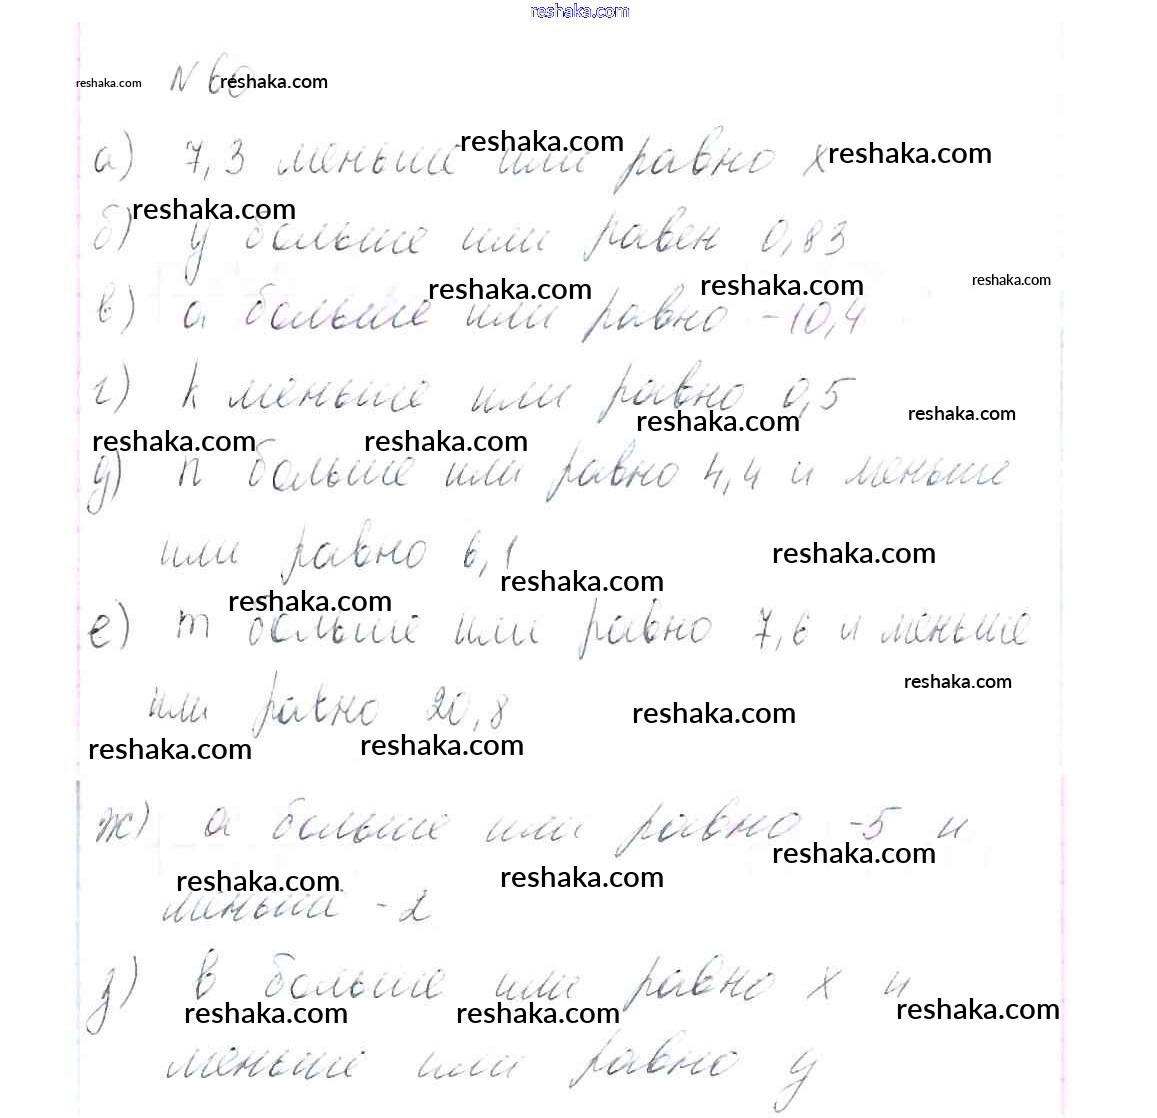 reshaka.com
reshaka.com № 60 reshaka.com
а) 7,3 меньше или равно x
reshaka.com reshaka.com
reshaka.com
б) y больше или равен 0,83
reshaka.com reshaka.com reshaka.com
в) a больше или равно -10,4
г) k меньше или равно 0,5
reshaka.com reshaka.com
reshaka.com reshaka.com
д) n больше или равно 4,4 и меньше
или равно 6,1
reshaka.com
reshaka.com
reshaka.com
е) m больше или равно 7,6 и меньше
reshaka.com
или равно 20,8
reshaka.com
reshaka.com reshaka.com
ж) a больше или равно -5 и
reshaka.com
reshaka.com reshaka.com
меньше -2
з) в больше или равно x и
reshaka.com reshaka.com reshaka.com
меньше или равно y